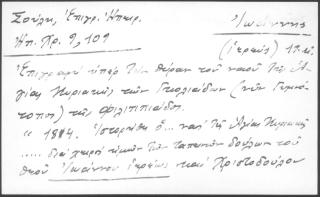 Σούλη, Ἐπιγρ. Ἠπειρ.
Ἠπ. Χρ. 9, 109
Ἰωάννης
(ἱερεύς)
Ἐπιγραφή ὑπέρ τήν θύραν τοῦ ναοῦ τῆς Ἁ-
γίας Κυριακῆς τῶν (νῦν
) τῆς Φιλιππιάδος.
" 1814. Ἱστορήθη ὁ... ναός τῆς Ἁγίας Κυριακῆς
..... διά χειρός τῶν ταπεινῶν δούλων τοῦ
Θεοῦ Ἰωάννου ἱερέως καί Χριστοδούλου